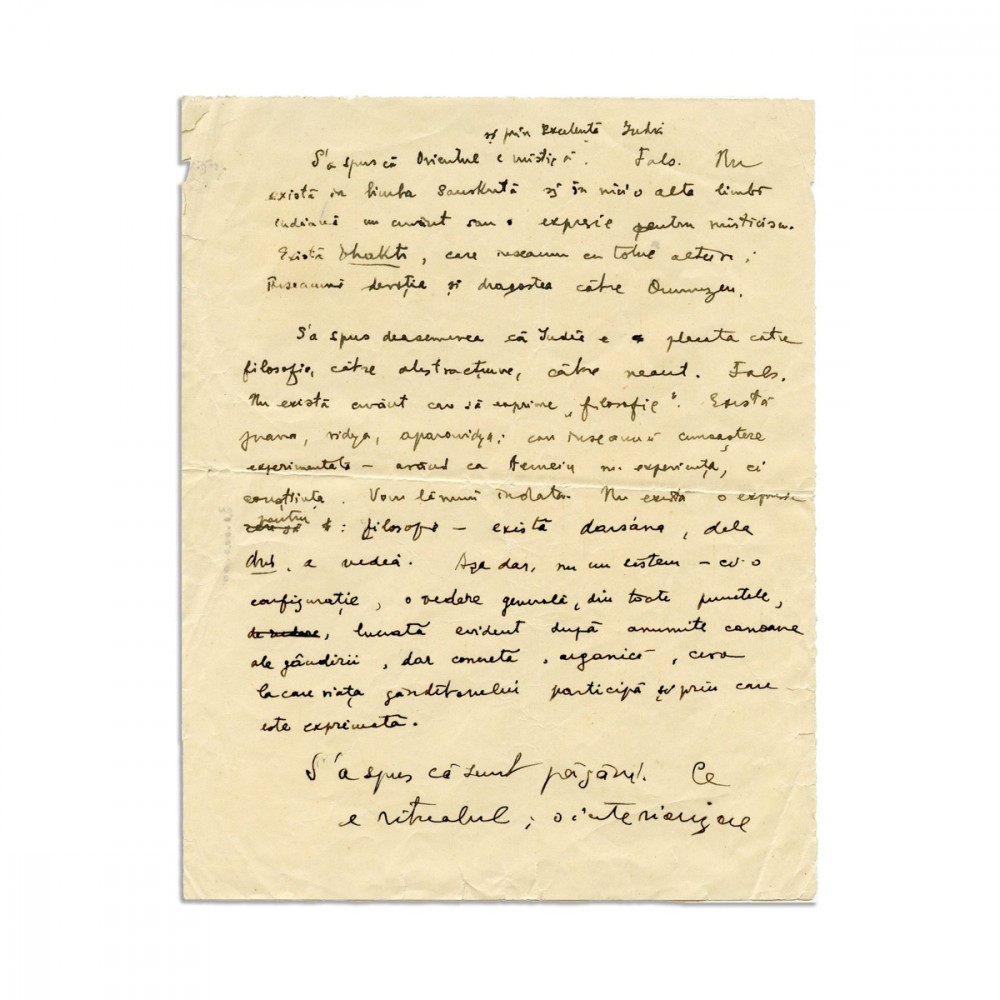 și prin excelență India
S'a spus că Orientul e mistică. Fals. Nu
există în limba sanskrită și în nici o altă limbă
indiană un cuvânt sau o expresie pentru misticism.
Există bhakti, care înseamnă cu totul altceva;
înseamnă devoția și dragostea către Dumnezeu.
S'a spus deasemenea că India e plecată către
filosofie, către abstracțiune, către neant. Fals.
Nu există cuvânt care să exprime „filosofie". Există
jnana, vidya, aparavidya; care înseamnă cunoaștere
experimentală – având ca temeiu nu experiența, ci
conștiința. Vom lămuri îndată. Nu există o expresie
care să pentru : filosof – există darsâna, dela
drś, a vedeà. Așa dar, nu un sistem – ci o
configurație, o vedere generală, din toate punctele,
de vedere, lucrată evident după anumite canoane
ale gândirii, dar concretă, organică, ceva
la care viața gânditorului participă și prin care
este exprimată.
S'a spus că sunt păgâni. Ce
e ritualul; o interiorizare